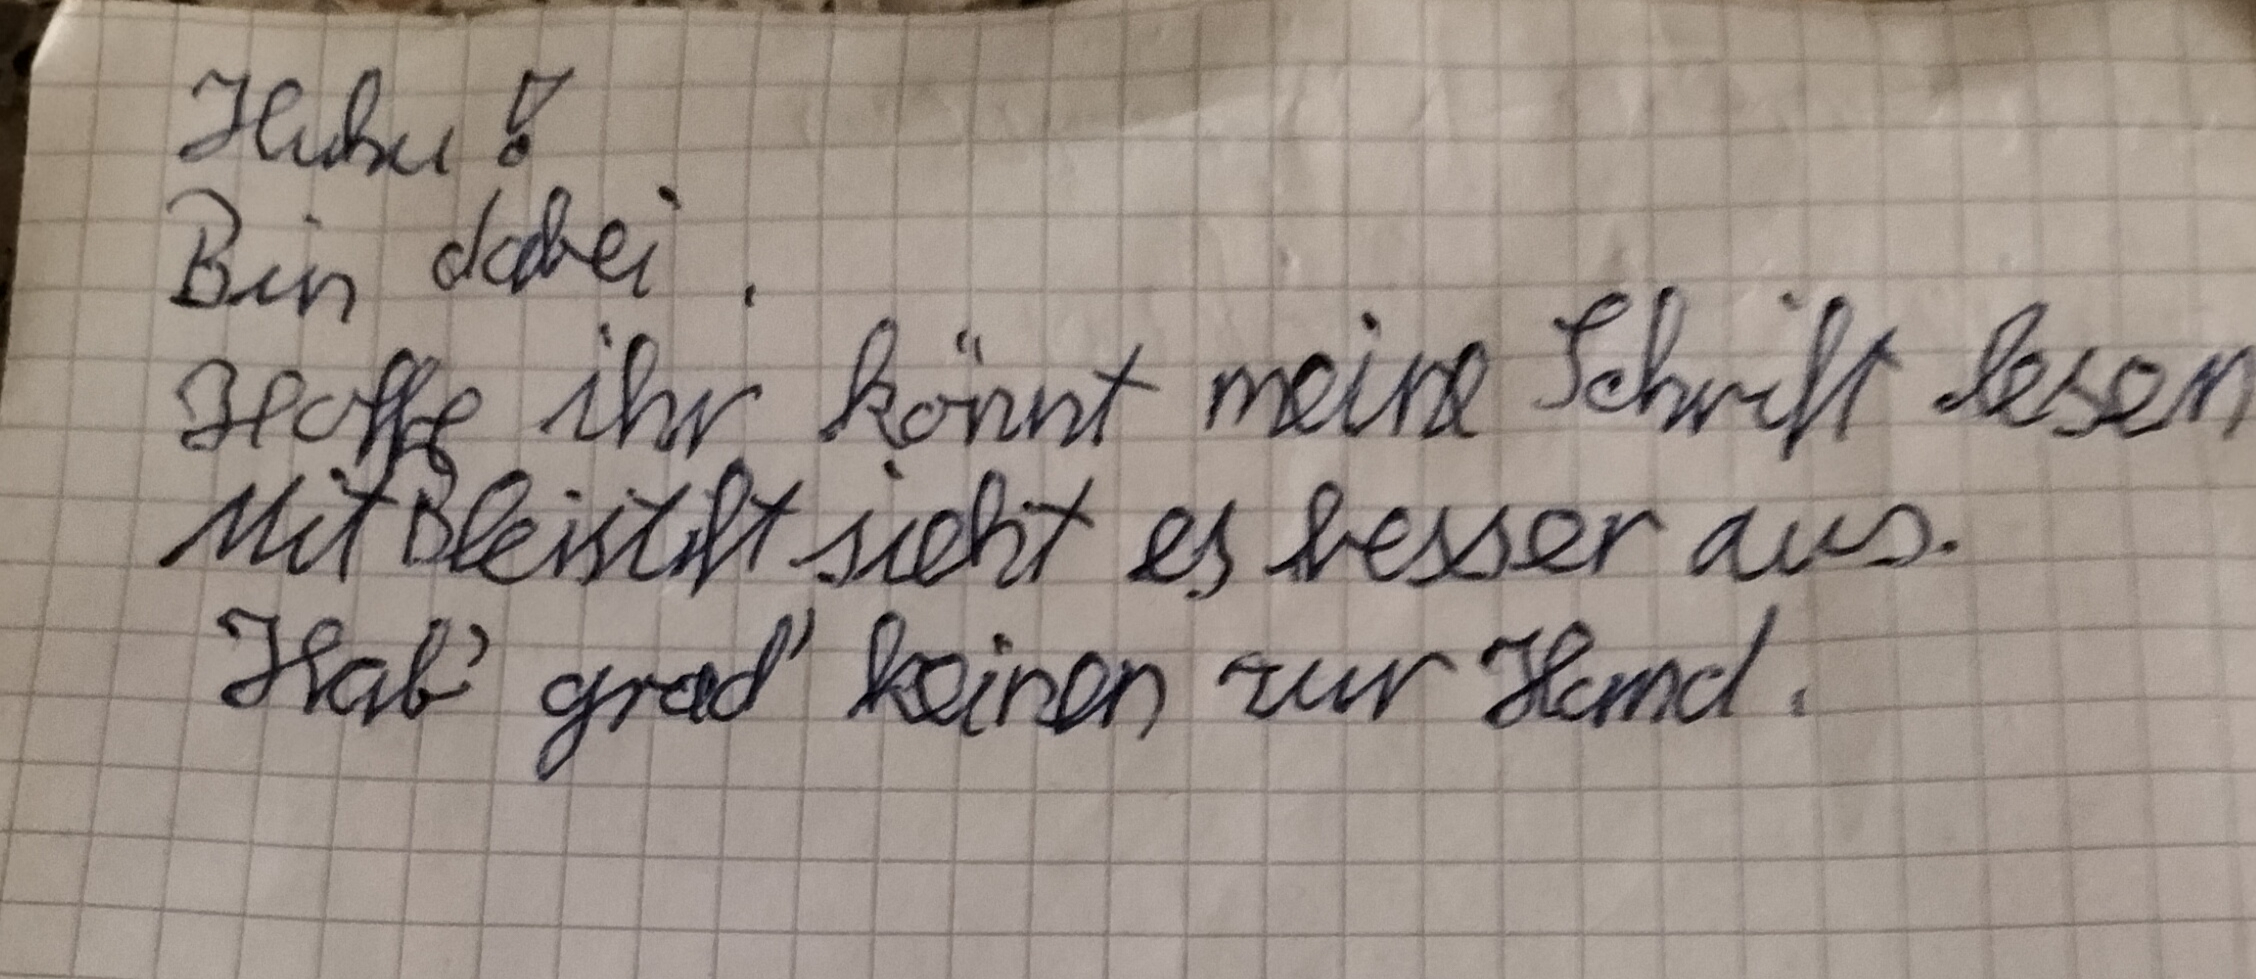 Huhu!
Bin dabei.
Hoffe ihr könnt meine Schrift lesen
Mit Bleistift sieht es besser aus.
Hab' grad' keinen zur Hand.